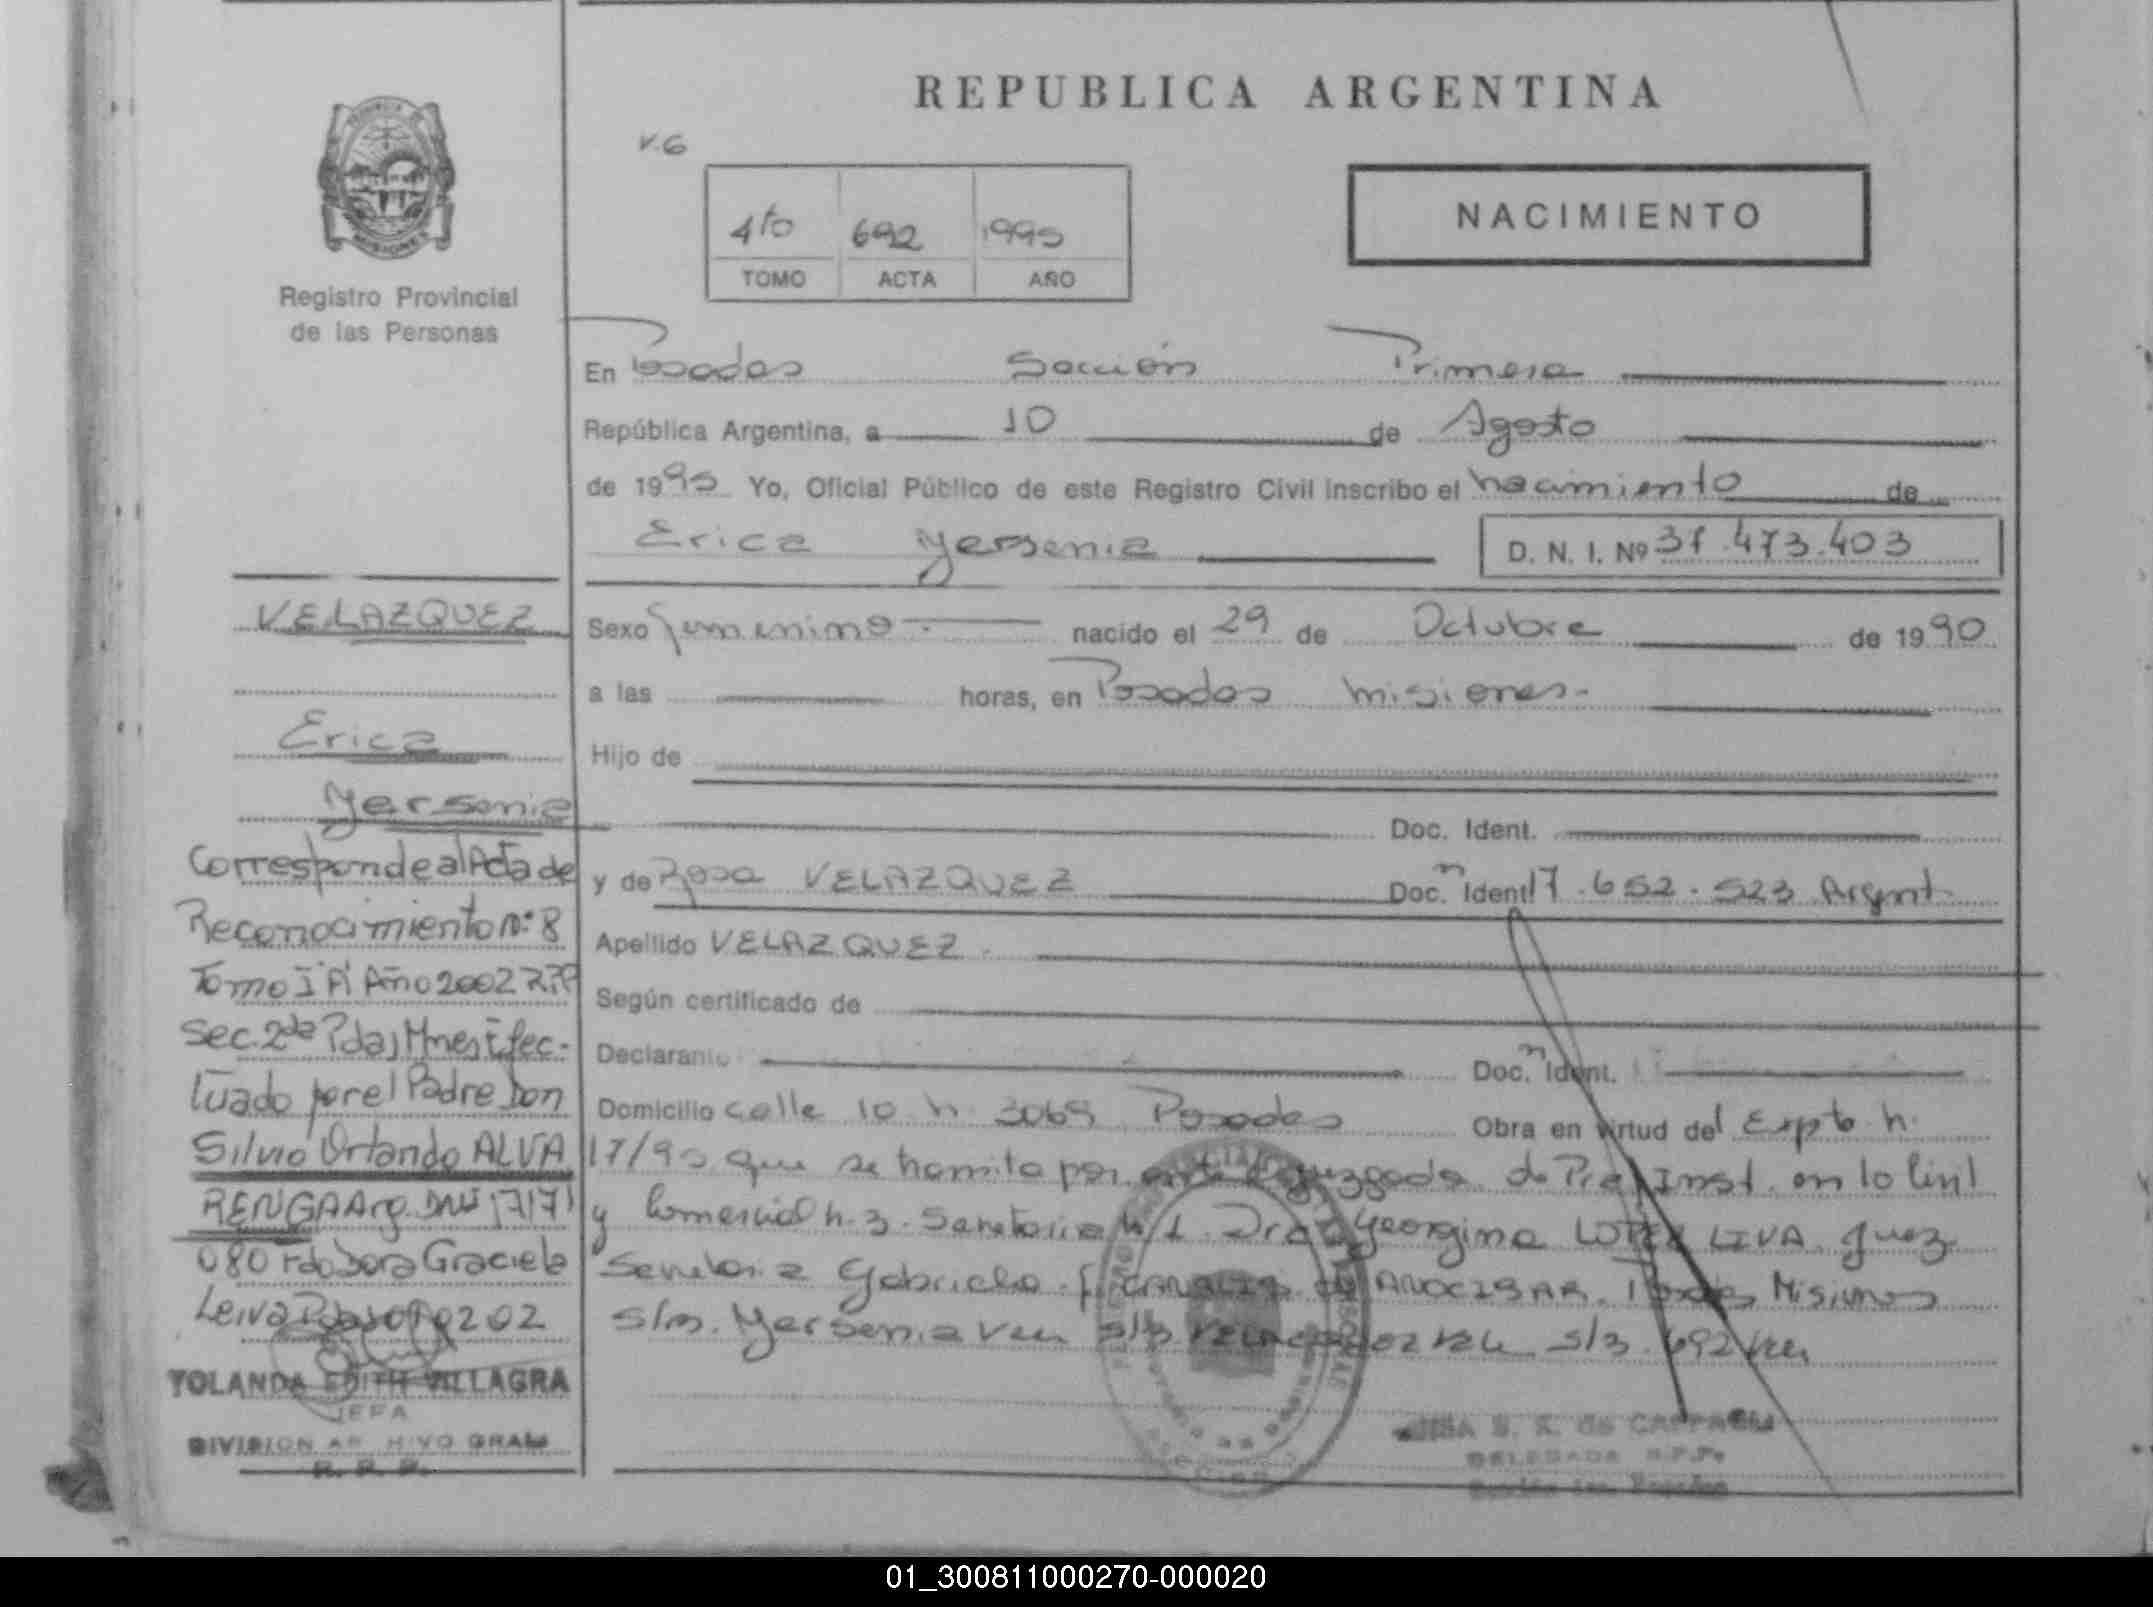 REPUBLICA ARGENTINA
V.6
4to 692 1995
TOMO ACTA AÑO
NACIMIENTO
MISIONES
Registro Provincial
de las Personas
En Posadas Sección Primera
República Argentina, a 10 de Agosto
de 1995 Yo, Oficial Público de este Registro Civil inscribo el nacimiento de
Erica Yersenia
D. N. I. Nº 31.473.403
Sexo femenino nacido el 29 de Octubre de 1990
a las horas, en Posadas Misiones.
Hijo de
Doc. Ident.
y de Rosa VELAZQUEZ Doc. n Ident. 17.652.523 Argent.
Apellido VELAZQUEZ.
Según certificado de
Declarante Doc. n Ident.
Domicilio calle 10 n. 3069 Posadas Obra en virtud del Expte n.
17/95 que se tramita por ante Juzgado de Pra Inst. en lo Civil
y Comercial n. 3. Secretoria n/1. Dra Georgina LOPEZ LIVA. Juez
Secretaria Gabriela CANALIS de AMOCISAR. Posadas Misiones
S/m. Yersenia s/b s/3. 692
VELAZQUEZ
Erica
Yersenia
Corresponde al Acta de
Reconocimiento Nº 8
Tomo I A Año 2002
Sec. 2da Pdas Mnes Efec-
tuado por el Padre Don
Silvio Orlando ALVA
RENGA Arg. DNI 17171
080 Fdo Dora Graciela
Leiva 0202
YOLANDA EDITH VILLAGRA
JEFA
DIVISION ARCHIVO GRAL
R. P. P.
DELEGADA R.P.P.
01_300811000270-000020